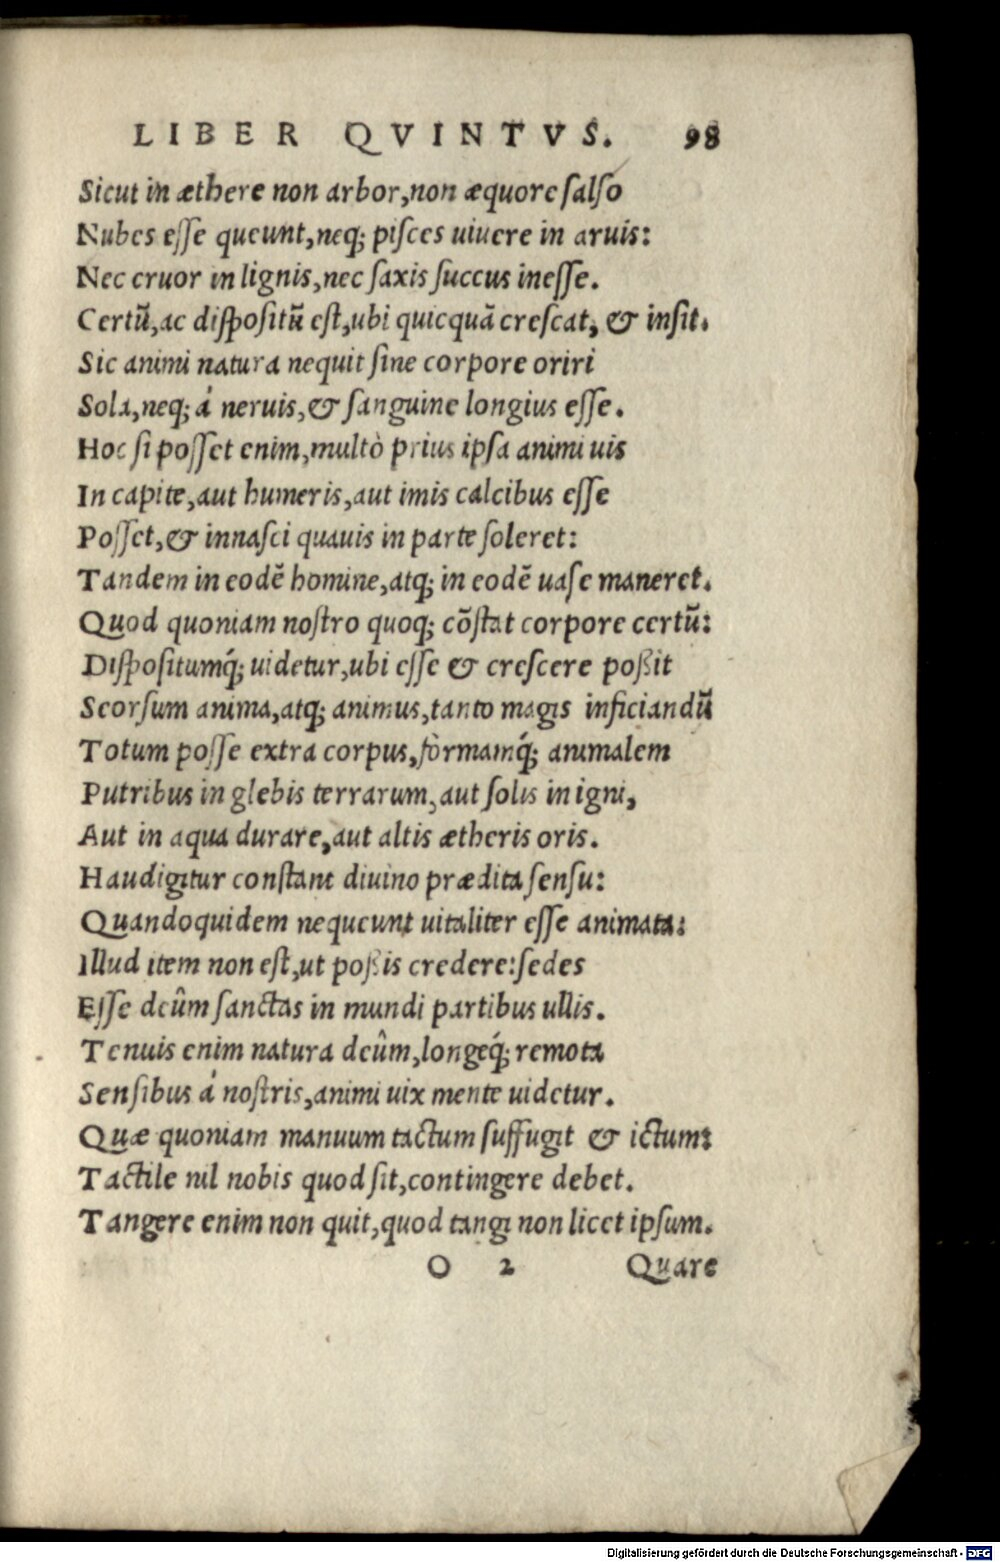 LIBER QVINTVS. 98
Sicut in æthere non arbor,non æquore ſalſo
Nubes eſſe queunt,neq; piſces uiuere in aruis:
Nec cruor in lignis,nec ſaxis ſuccus ineſſe.
Certũ,ac diſpoſitũ eſt,ubi quicquã creſcat, & inſit.
Sic animi natura nequit ſine corpore oriri
Sola,neq; á neruis,& ſanguine longius eſſe.
Hoc ſi poſſet enim,multò prius ipſa animi uis
In capite,aut humeris,aut imis calcibus eſſe
Poſſet,& innaſci quauis in parte ſoleret:
Tandem in eodẽ homine,atq; in eodẽ uaſe maneret.
Quod quoniam noſtro quoq; cõſtat corpore certũ:
Diſpoſitumq́; uidetur,ubi eſſe & creſcere poßit
Seorſum anima,atq; animus,tanto magis inficiandũ
Totum poſſe extra corpus,formamq́; animalem
Putribus in glebis terrarum,aut ſolis in igni,
Aut in aqua durare,aut altis ætheris oris.
Haudigitur conſtant diuino prædita ſenſu:
Quandoquidem nequeunt uitaliter eſſe animata:
Illud item non eſt,ut poßis credere:ſedes
Eſſe deûm ſanctas in mundi partibus ullis.
Tenuis enim natura deûm,longeq́; remota
Senſibus á noſtris,animi uix mente uidetur.
Quæ quoniam manuum tactum ſuffugit & ictum:
Tactile nil nobis quod ſit,contingere debet.
Tangere enim non quit,quod tangi non licet ipſum.
O 2 Quare
Digitalisierung gefördert durch die Deutsche Forschungsgemeinschaft - DFG